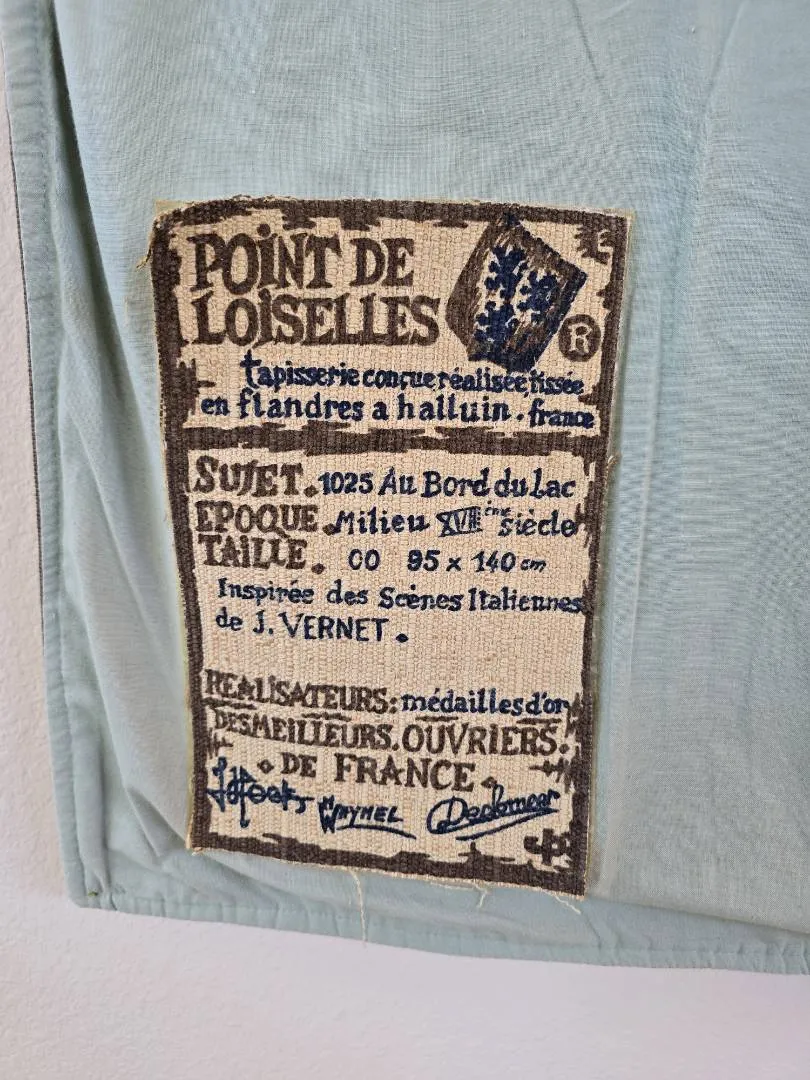 POINT DE
LOISELLES
®
tapisserie conçue réalisée, tissée
en flandres a halluin. france
SUJET. 1025 Au Bord du Lac
EPOQUE. Milieu XVIIIème siècle
TAILLE. CO 95 x 140 cm
Inspirée des Scènes Italiennes
de J. VERNET.
REALISATEURS: médailles d'or
DES MEILLEURS. OUVRIERS.
DE FRANCE